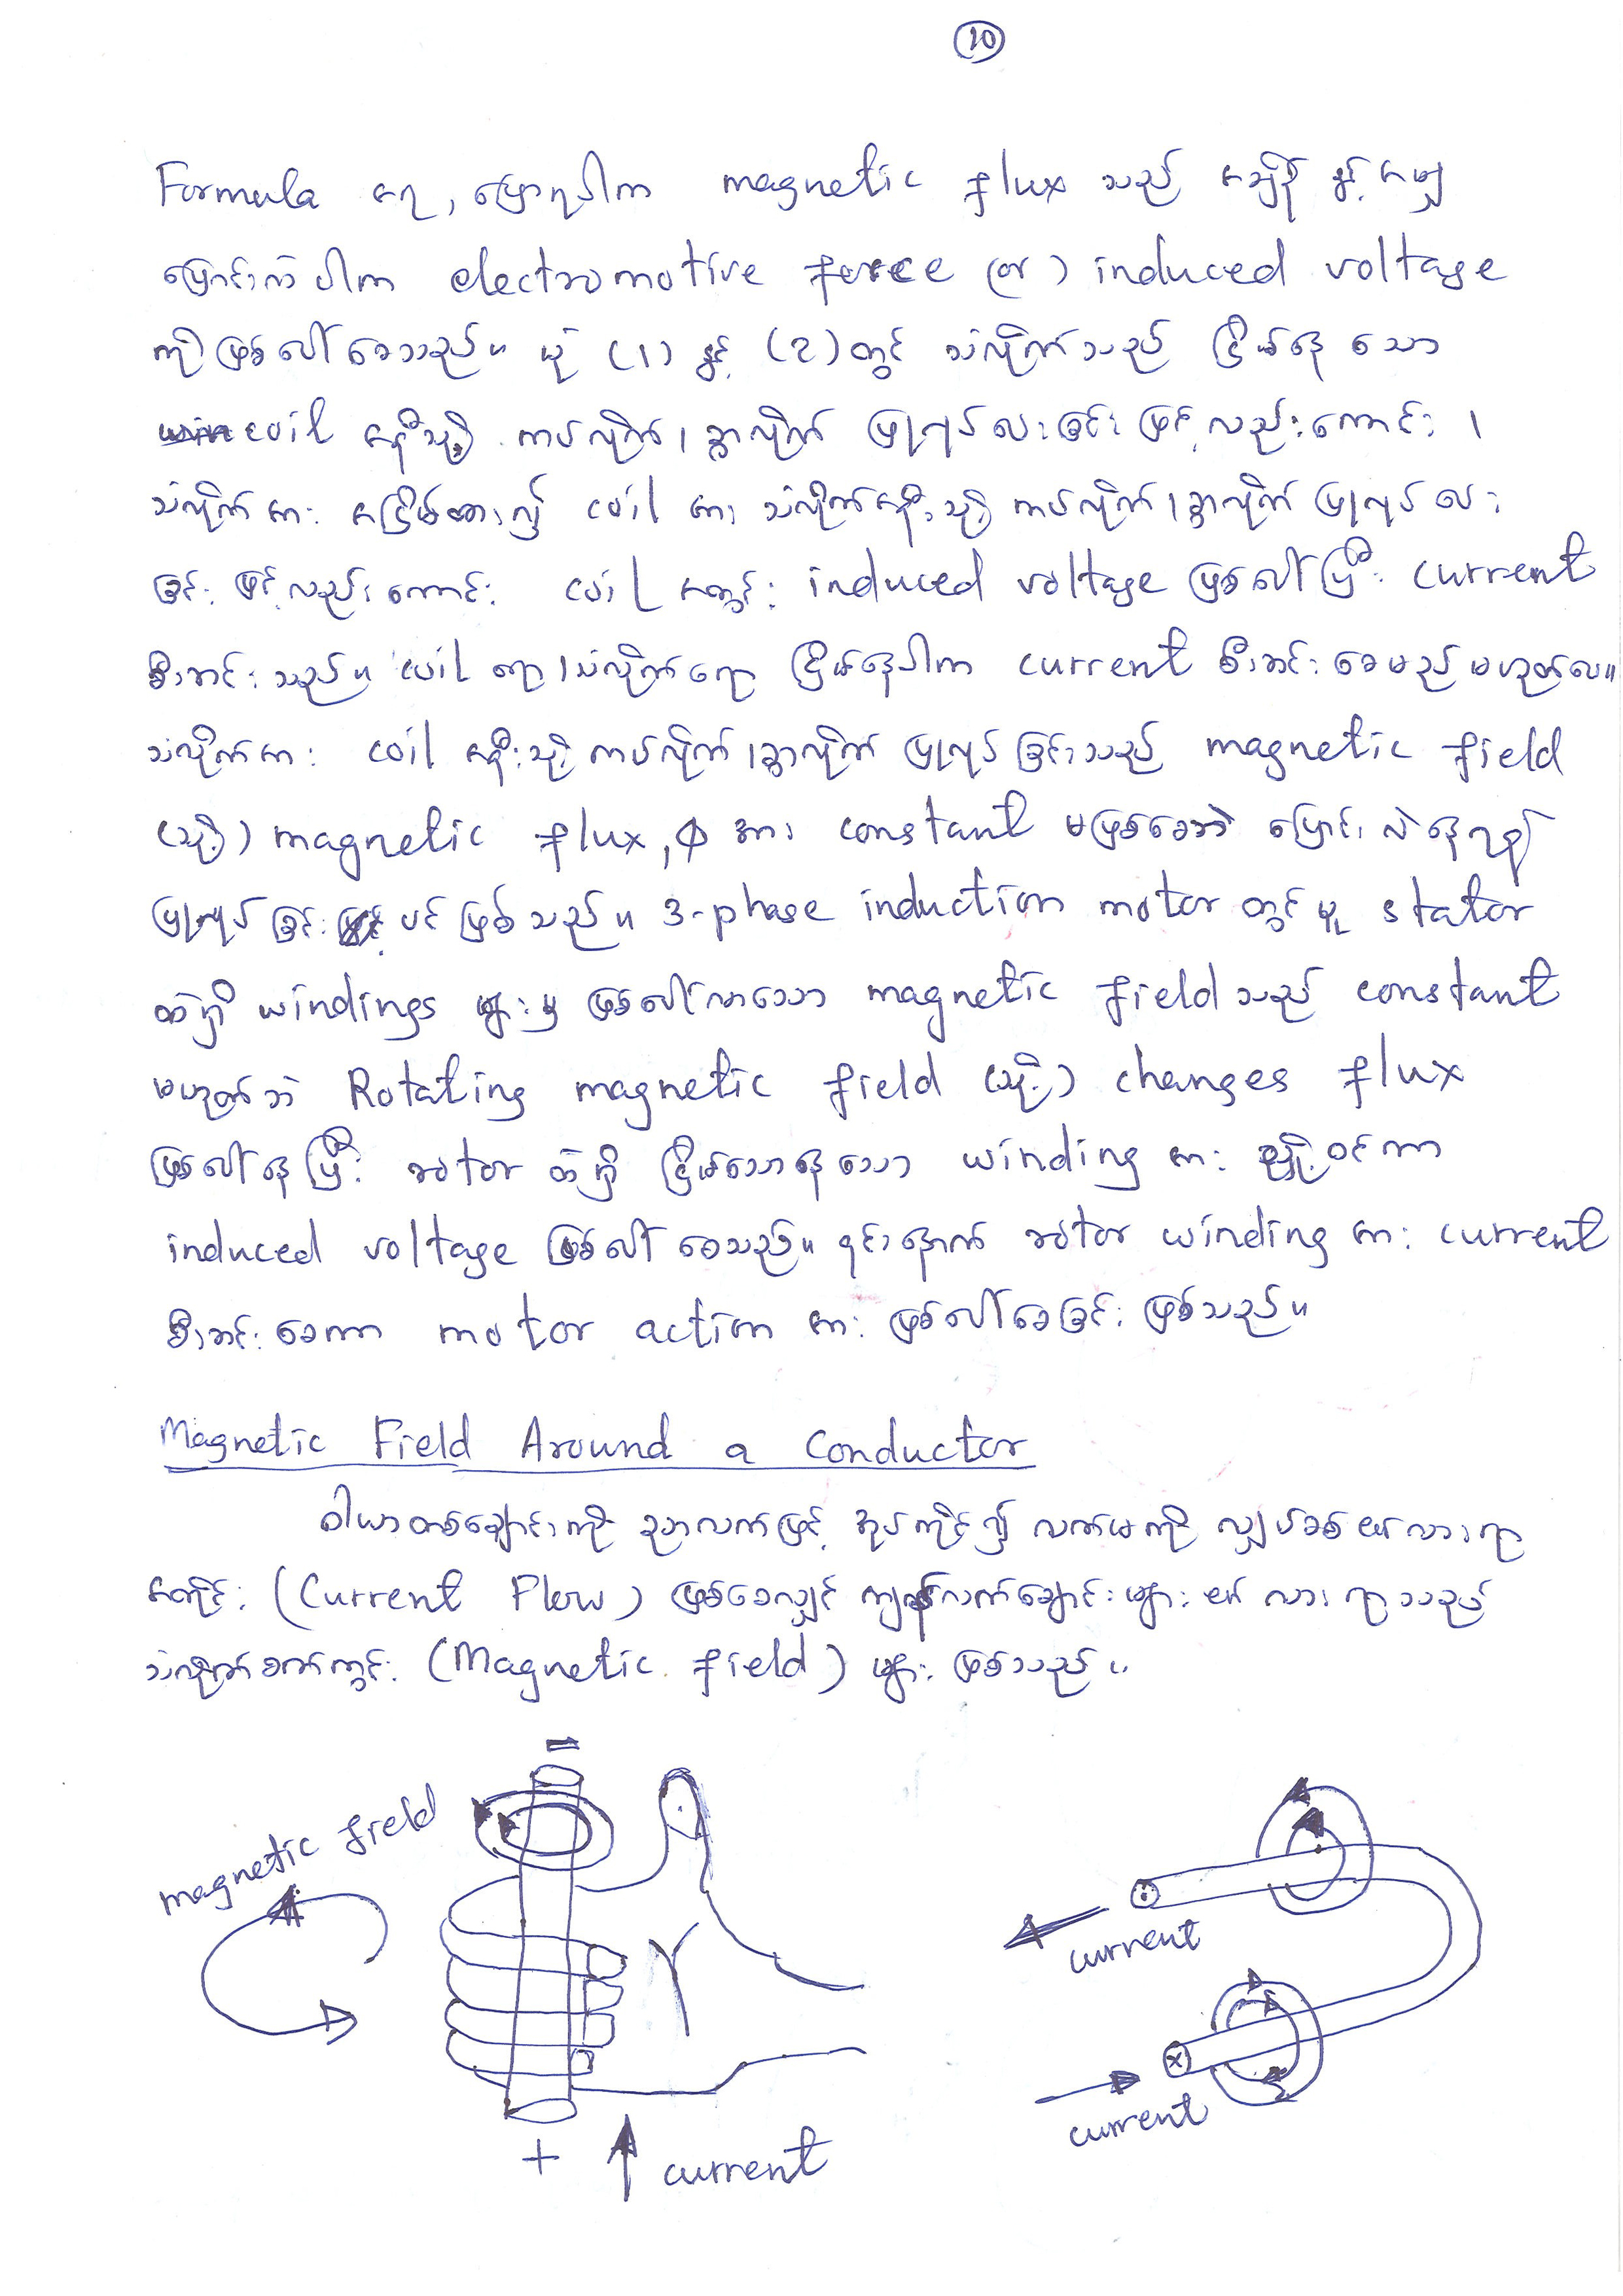 10
Formula အရ, ပြောရပါက magnetic flux သည် အချိန် နှင့် အမျှ
ပြောင်းလဲပါက electromotive force (or) induced voltage
ကို ဖြစ်ပေါ်စေသည်။ ပုံ (1) နှင့် (2) တွင် သံလိုက်သည် ငြိမ်နေ သော
coil အနီးသို့ ကပ်လိုက်၊ ခွာလိုက် ပြုလုပ်ပေးခြင်း ဖြင့်လည်းကောင်း ၊
သံလိုက်အား အငြိမ်ထား၍ coil အား သံလိုက်အနီးသို့ ကပ်လိုက်၊ ခွာလိုက် ပြုလုပ် ပေး
ခြင်း ဖြင့်လည်းကောင်း coil အတွင်း induced voltage ဖြစ်ပေါ်ပြီး current
စီးဆင်းသည်။ coil ရော၊ သံလိုက်ရော ငြိမ်နေပါက current စီးဆင်းစေမည် မဟုတ်ပေ။
သံလိုက်အား coil အနီးသို့ ကပ်လိုက်၊ ခွာလိုက် ပြုလုပ်ခြင်းသည် magnetic field
(သို့) magnetic flux, φ အား constant မဖြစ်စေဘဲ ပြောင်းလဲနေရန်
ပြုလုပ်ခြင်း ပင် ဖြစ်သည်။ 3-phase induction motor တွင်မူ stator
ထဲရှိ windings များမှ ဖြစ်ပေါ်လာသော magnetic field သည် constant
မဟုတ်ဘဲ Rotating magnetic field (သို့) changes flux
ဖြစ်ပေါ်နေပြီး rotor ထဲရှိ ငြိမ်သောနေသော winding အား ညှို့ဝင်ကာ
induced voltage ဖြစ်ပေါ်စေသည်။ ၎င်းနောက် rotor winding အား current
စီးဆင်းစေကာ motor action အား ဖြစ်ပေါ်စေခြင်း ဖြစ်သည်။
Magnetic Field Around a Conductor
ဝါယာတစ်ချောင်းကို ညာလက်ဖြင့် အုပ်ကိုင်၍ လက်မကို လျှပ်စစ် စီးသွားရာ
အတိုင်း (Current Flow) ဖြစ်စေလျှင် ကျန်လက်ချောင်းများ စီးသွားရာသည်
သံလိုက်စက်ကွင်း (Magnetic field) များ ဖြစ်သည်။
magnetic field
current
+ current
current